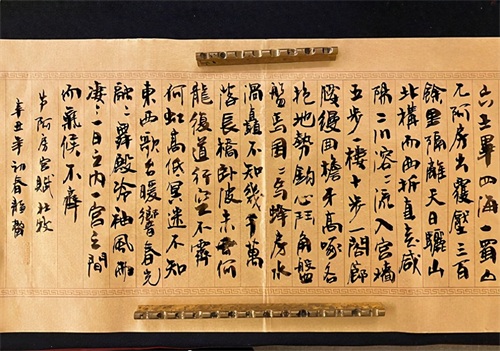 六王畢四海一蜀山
兀阿房出覆壓三百
餘里隔離天日驪山
北構而西折直走咸
陽二川溶〻流入宮牆
五步一樓十步一閣廊
腰縵回檐牙高啄各
抱地勢鈎心鬥角盤
盤焉囷〻焉蜂房水
渦矗不知幾千萬
落長橋臥波未雲何
龍復道行空不霽
何虹高低冥迷不知
東西歌台暖響春光
融〻舞殿冷袖風雨
凄〻一日之內一宮之間
而氣候不齊
阿房宮賦 杜牧
辛丑年初春